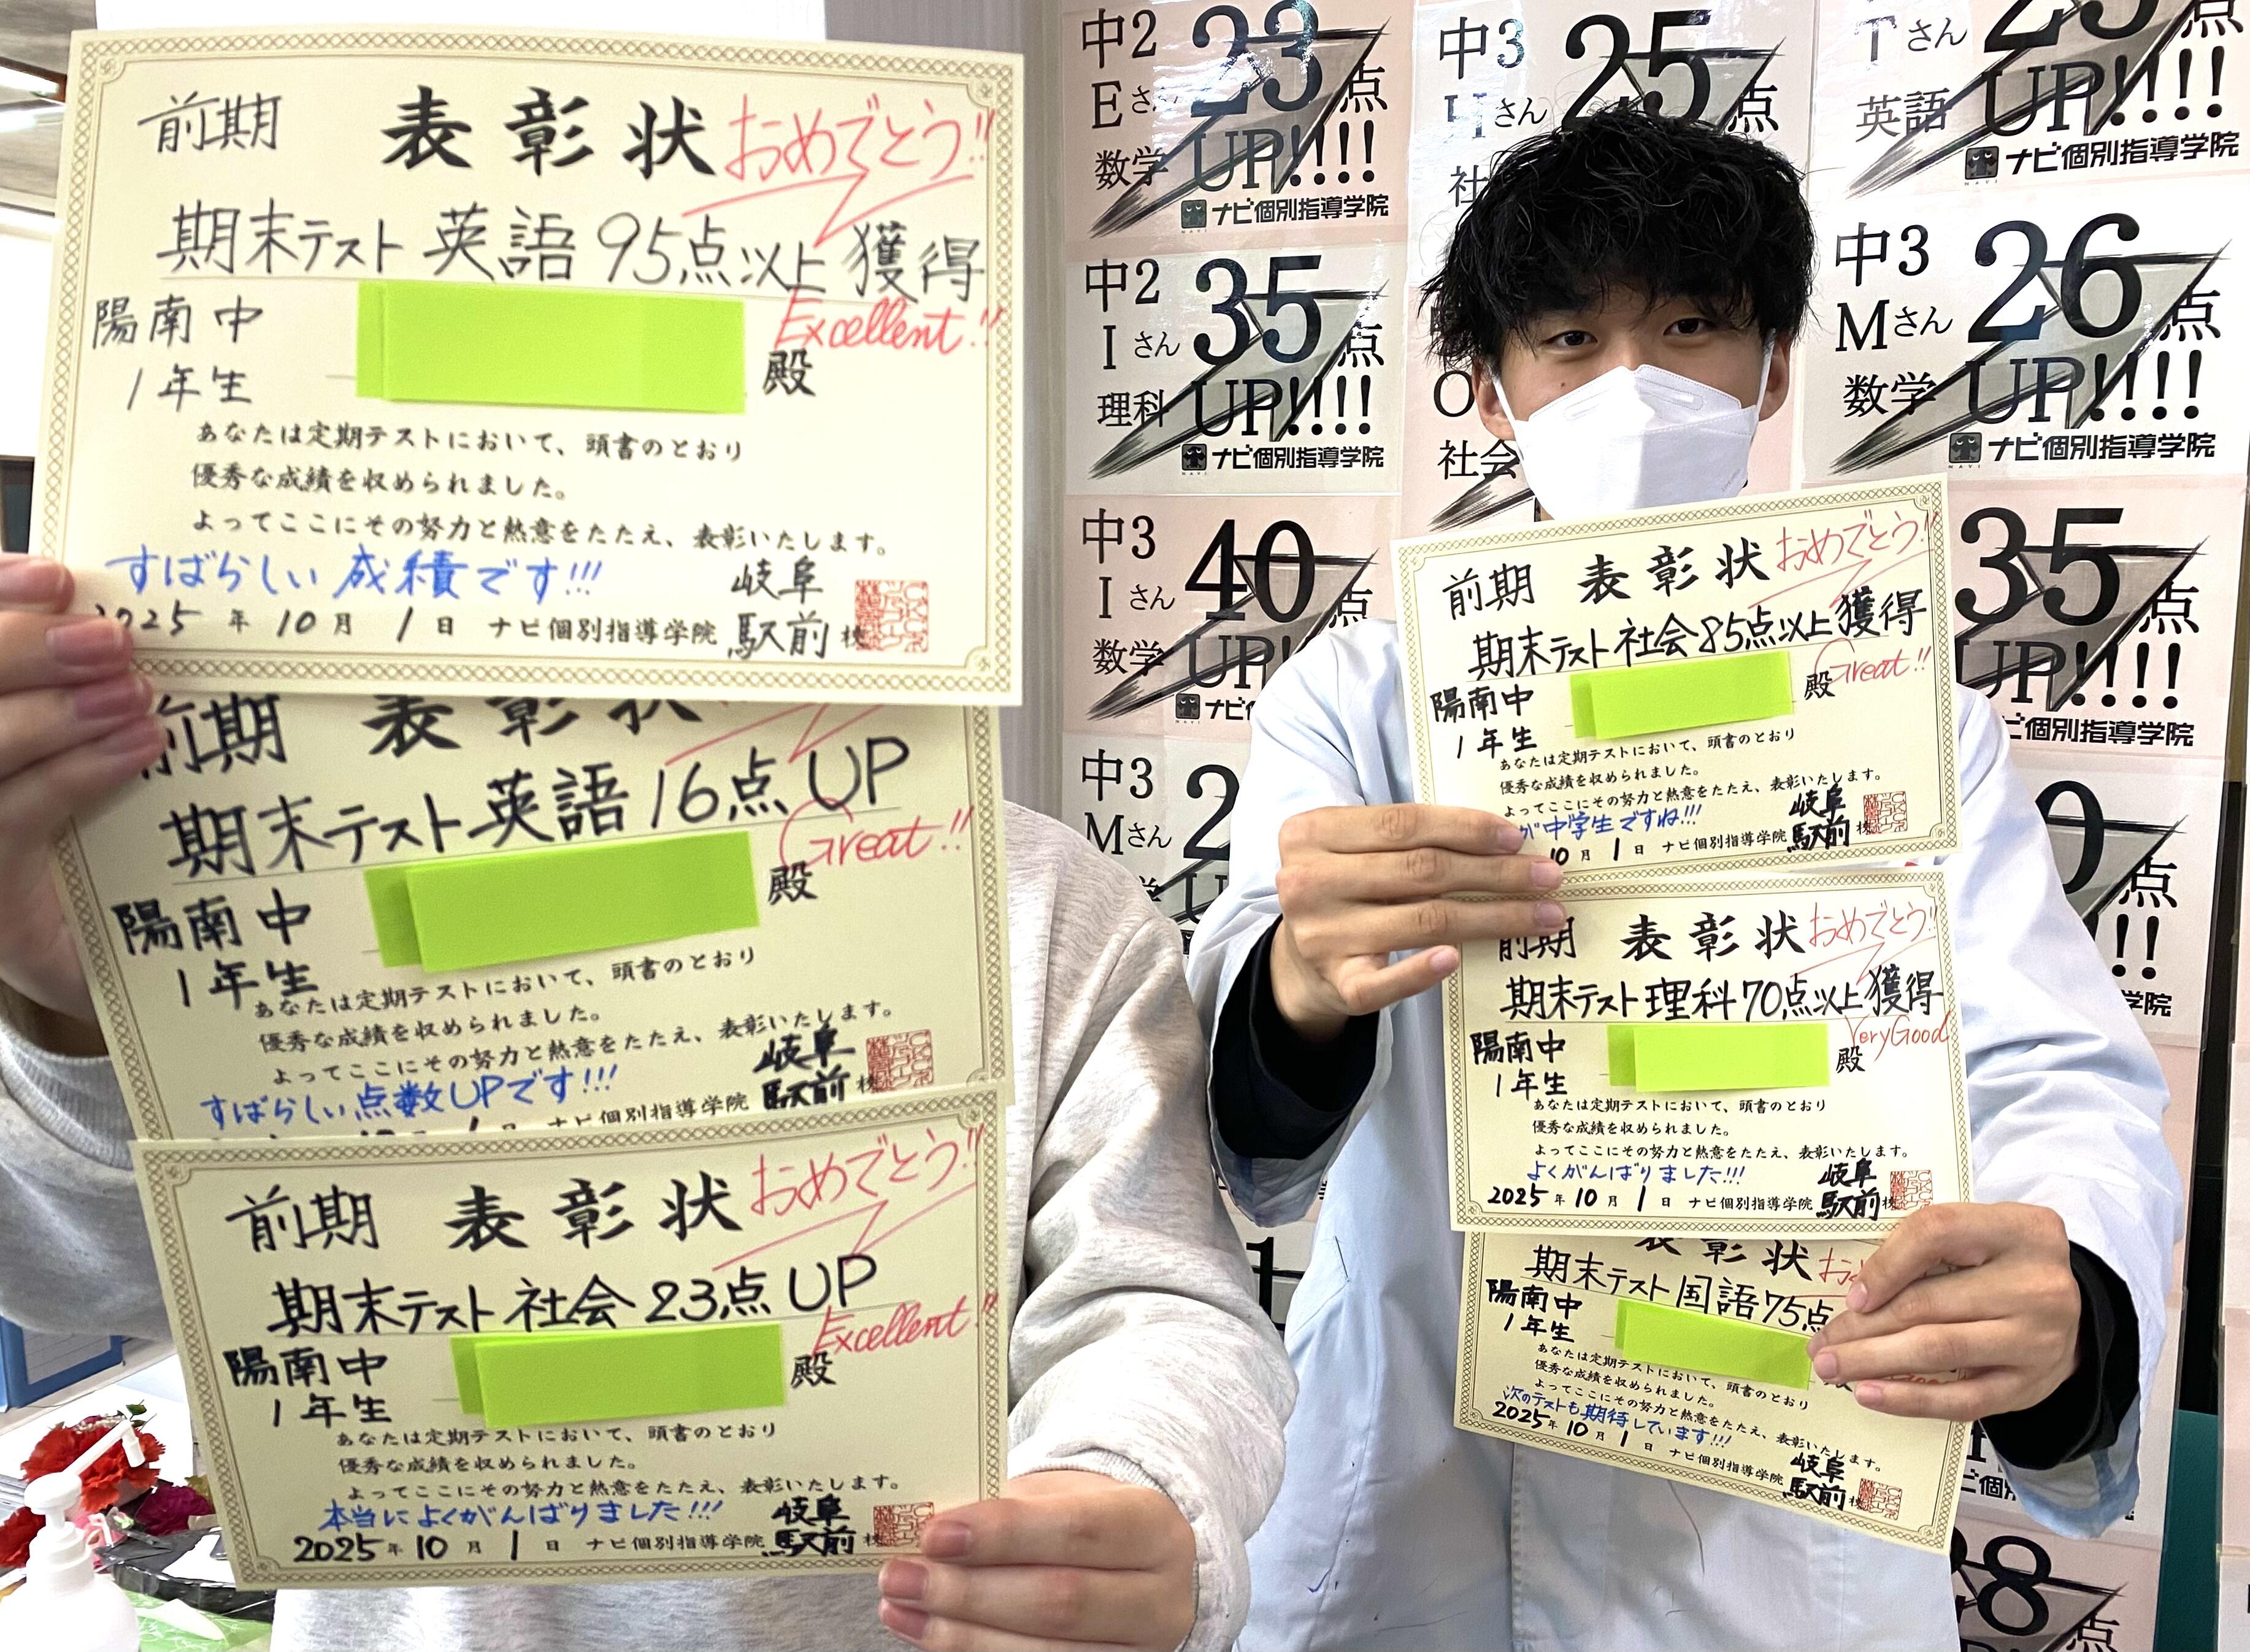 前期 表彰状 おめでとう!!
期末テスト 英語 95点以上 獲得
Excellent!!
陽南中
1年生
殿
あなたは定期テストにおいて、頭書のとおり
優秀な成績を収められました。
よってここにその努力と熱意をたたえ、表彰いたします。
すばらしい成積です!!!
岐阜
2025年 10月 1日 ナビ個別指導学院 駅前 校
前期 表彰状
期末テスト 英語 16点 UP
Great!!
陽南中
1年生
殿
あなたは定期テストにおいて、頭書のとおり
優秀な成績を収められました。
よってここにその努力と熱意をたたえ、表彰いたします。
すばらしい点数UPです!!!
岐阜
ナビ個別指導学院 駅前 校
前期 表彰状 おめでとう!!
期末テスト 社会 23点 UP
Excellent!!
陽南中
1年生
殿
あなたは定期テストにおいて、頭書のとおり
優秀な成績を収められました。
よってここにその努力と熱意をたたえ、表彰いたします。
本当によくがんばりました!!!
岐阜
2025年 10月 1日 ナビ個別指導学院 駅前 校
前期 表彰状 おめでとう!!
期末テスト 社会 85点以上 獲得
Great!!
陽南中
1年生
殿
あなたは定期テストにおいて、頭書のとおり
優秀な成績を収められました。
よってここにその努力と熱意をたたえ、表彰いたします。
が中学生ですね!!!
岐阜
10月 1日 ナビ個別指導学院 駅前 校
前期 表彰状 おめでとう!!
期末テスト 理科 70点以上 獲得
Very Good
陽南中
1年生
殿
あなたは定期テストにおいて、頭書のとおり
優秀な成績を収められました。
よってここにその努力と熱意をたたえ、表彰いたします。
よくがんばりました!!!
岐阜
2025年 10月 1日 ナビ個別指導学院 駅前 校
表彰状
期末テスト 国語 75点
陽南中
1年生
あなたは定期テストにおいて、頭書のとおり
優秀な成績を収められました。
よってここにその努力と熱意をたたえ、表彰いたします。
次のテストも期待しています!!!
岐阜
2025年 10月 1日 ナビ個別指導学院 駅前 校
中2
Eさん
数学
23点
UP!!!!
ナビ個別指導学院
中2
Iさん
理科
35点
UP!!!!
ナビ個別指導学院
中3
Iさん
数学
40点
UP!
ナビ個
中3
Mさん
中3
Hさん
社
25点
社会
Tさん
英語
点
UP!!!!
ナビ個別指導学院
中3
Mさん
数学
26点
UP!!!!
ナビ個別指導学院
35点
UP!!!!
個別指導学院
点
!!
学院
点